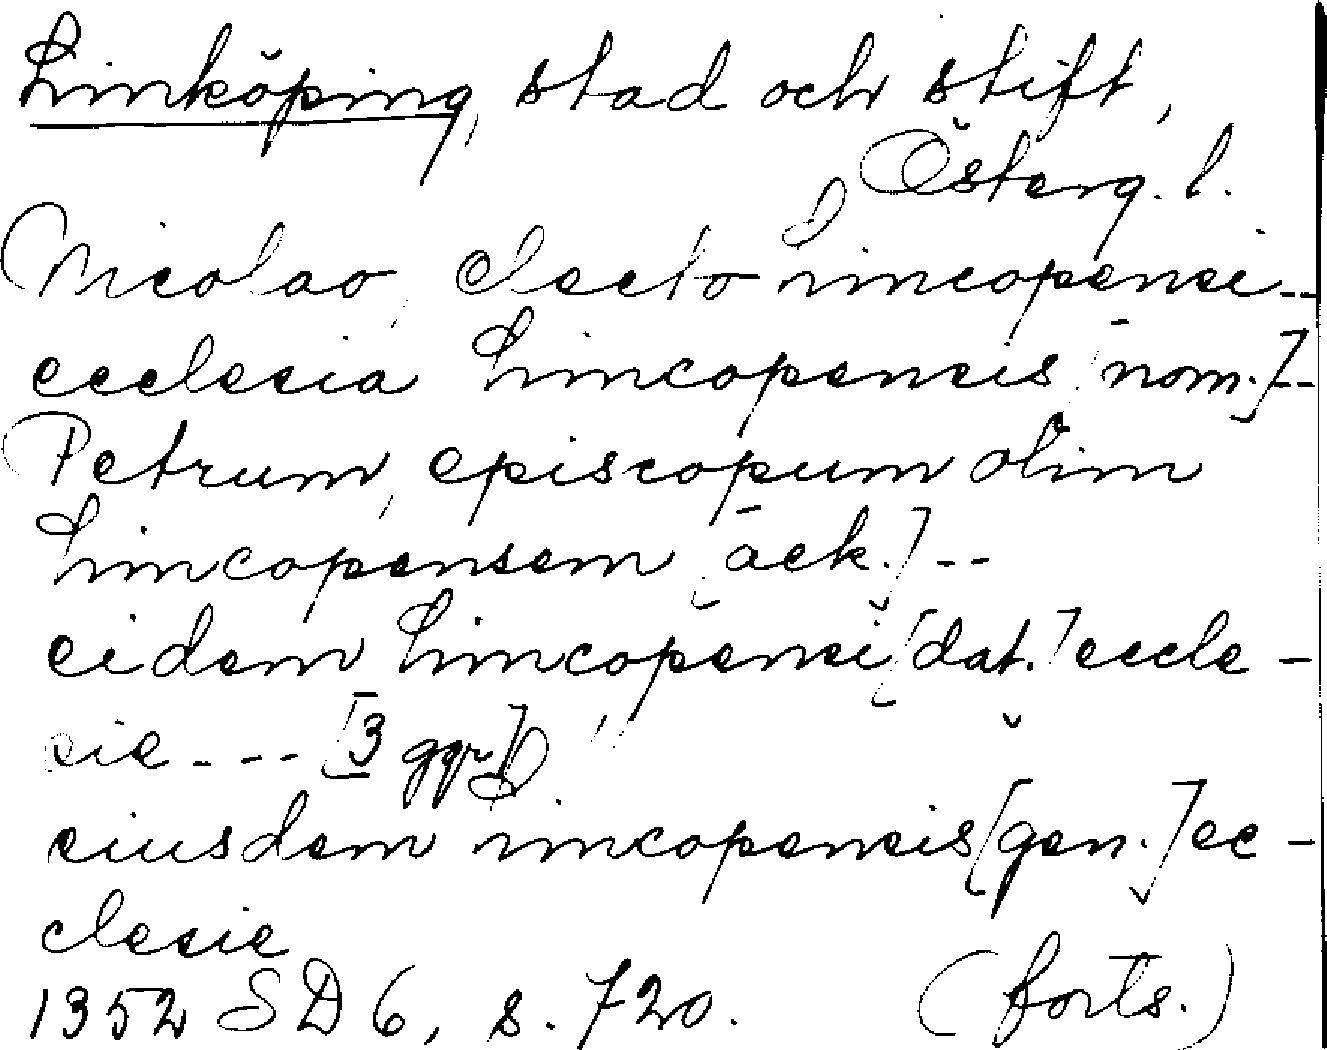 Linköping, stad och stift,
Österg. l.
Nicolao, electo lincopensi --
ecclesia Lincopensis [nom.] --
Petrum, episcopum olim
Lincopensem [ack.] --
eidem Lincopensi [dat.] eccle-
sie --- [3 ggr]
eiusdem lincopensis [gen.] ec-
clesie
1352 SD 6, s. 720. (forts.)